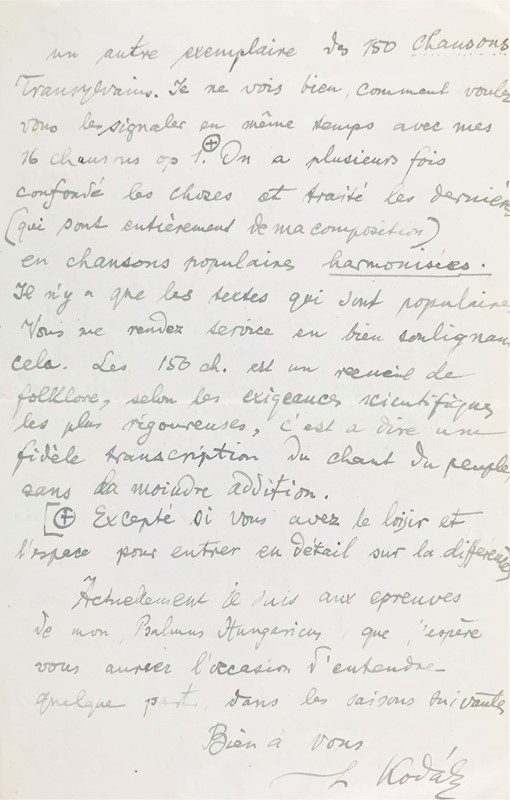 un autre exemplaire des 150 chansons
Transylvains. Je ne vois bien, comment voulez
vous les signaler en même temps avec mes
16 chansons op 1. ⊕ On a plusieurs fois
confondé les chozes et traité les dernières
(qui sont entièrement de ma composition)
en chansons populaires harmonisées.
Il n'y a que les textes qui sont populaires
Vous me rendez service en bien soulignant
cela. Les 150 ch. est un recueil de
folklore, selon les exigeances scientifiques
les plus rigoureuses, c'est a dire une
fidèle transcription du chant du peuple,
sans la moindre addition.
[⊕ Excepté si vous avez le loisir et
l'espace pour entrer en détail sur la différence
Actuellement je suis aux epreuves
de mon Psalmus Hungaricus que j'espère
vous auriez l'occasion d'entendre
quelque part dans les saisons suivantes
Bien à vous
Kodály